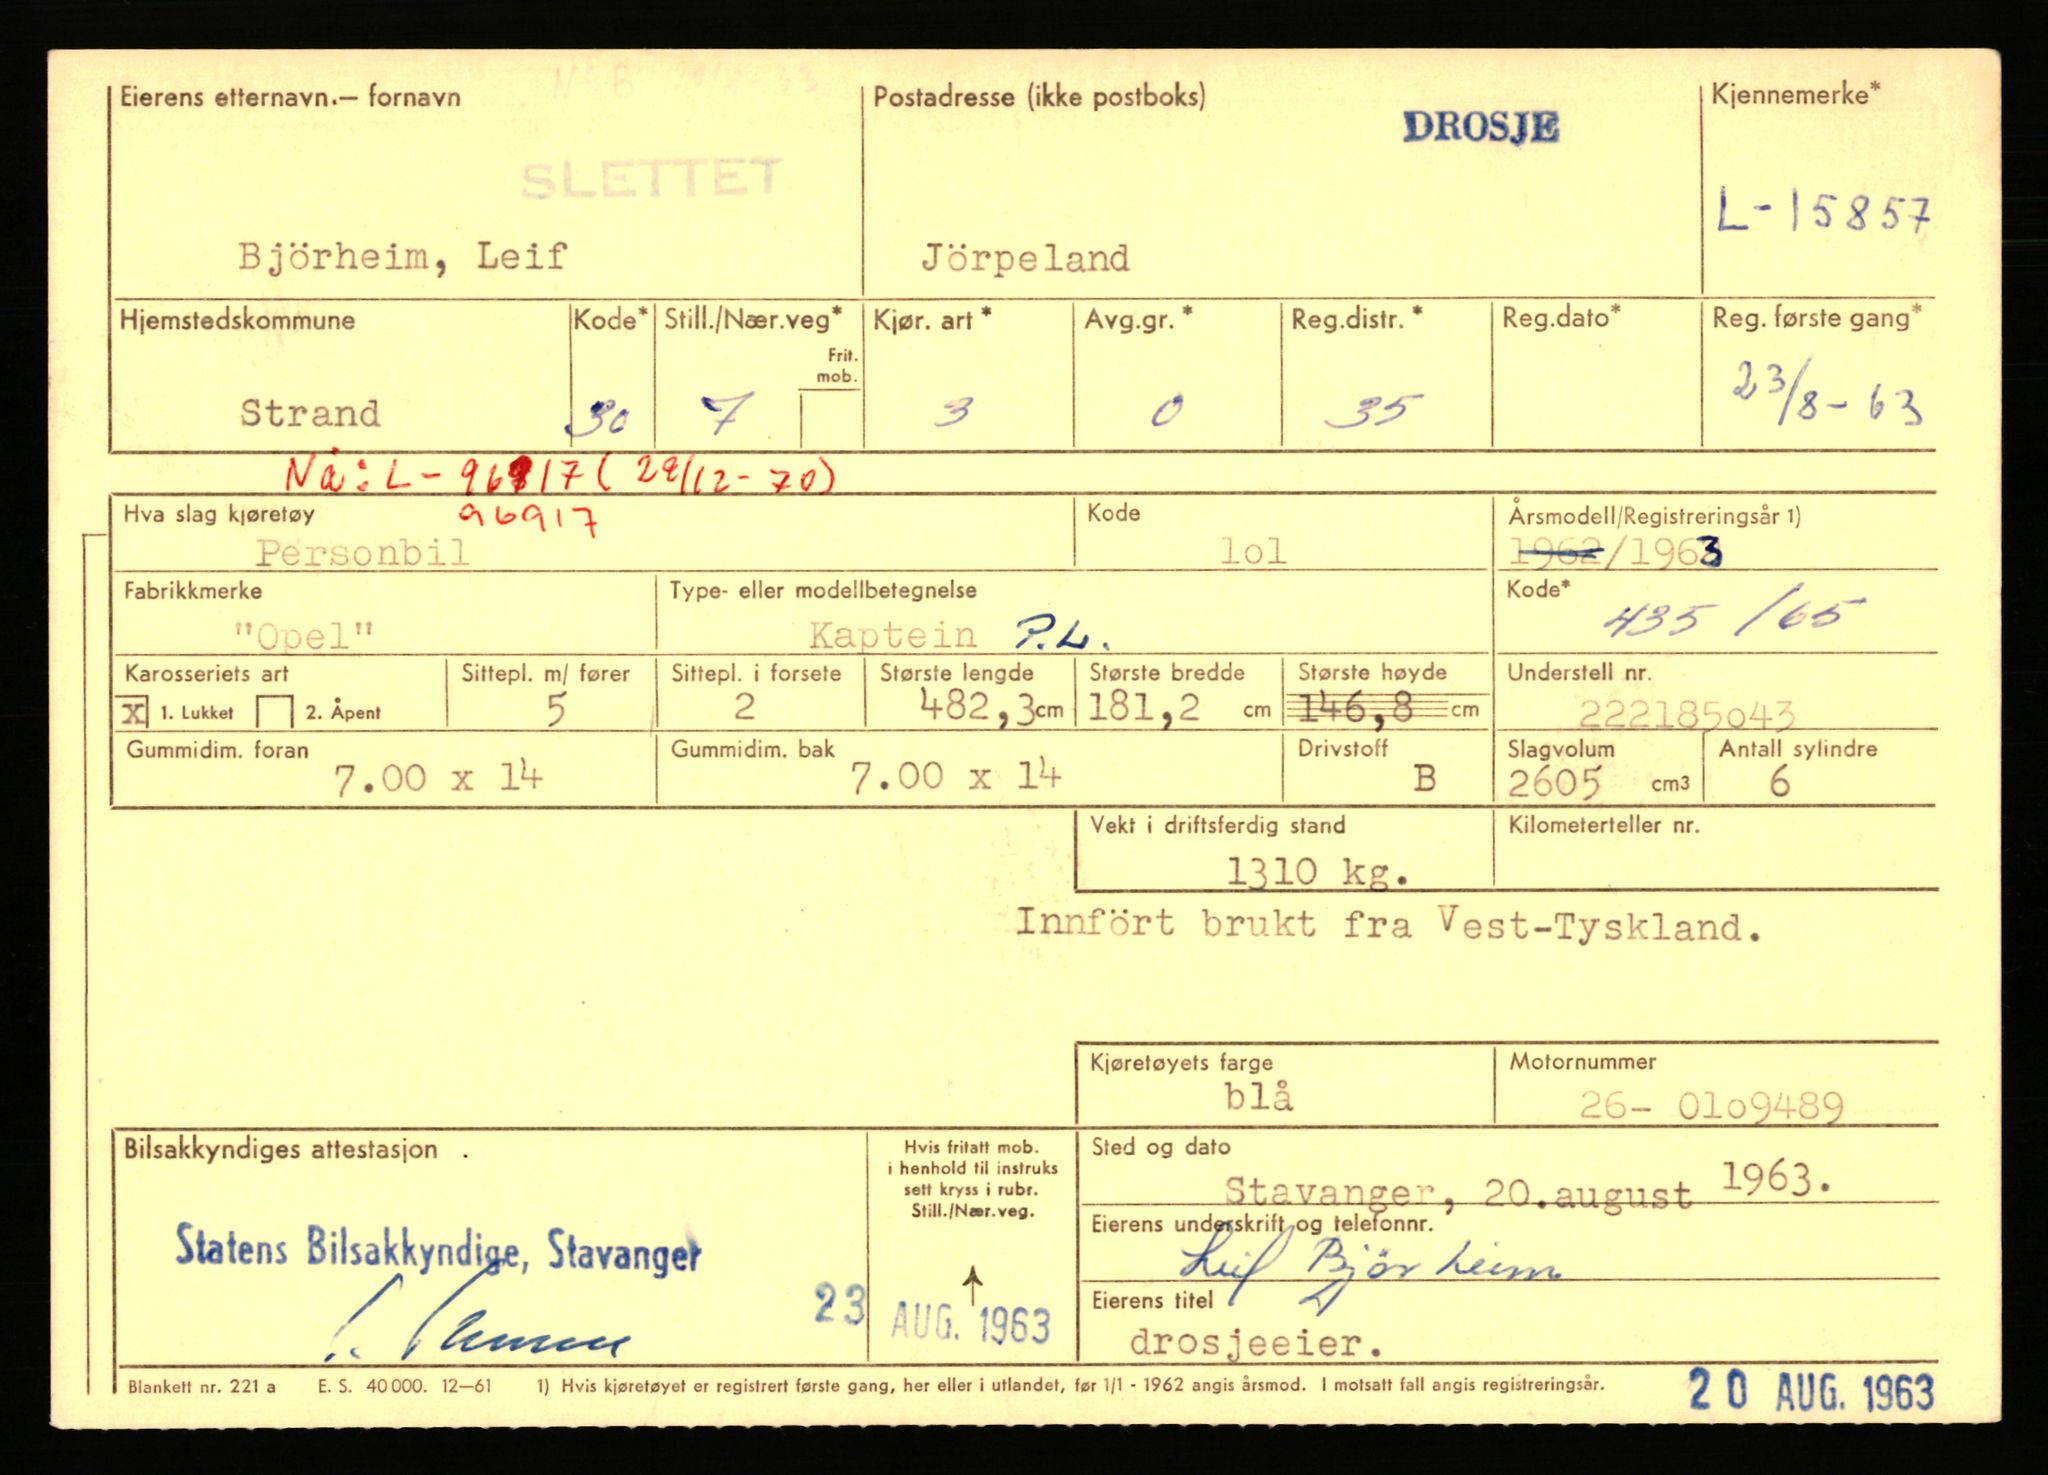 Eierens etternavn.— fornavn
Postadresse (ikke postboks)
Kjennemerke*
DROSJE
SLETTET
L-15857
Björheim, Leif
Jörpeland
Hjemstedskommune
Kode*
Still./Nær.veg*
Frit. mob.
Kjør. art *
Avg.gr. *
Reg.distr. *
Reg.dato*
Reg. første gang*
Strand
30
7
3
0
35
23/8-63
Nå: L-96917 (29/12-70)
96917
Hva slag kjøretøy
Kode
Årsmodell/Registreringsår 1)
Personbil
lol
1962/1963
Fabrikkmerke
Type- eller modellbetegnelse
Kode*
"Opel"
Kaptein P.L.
435 /65
Karosseriets art
Sittepl. m/ fører
Sittepl. i forsete
Største lengde
Største bredde
Største høyde
Understell nr.
X 1. Lukket
2. Åpent
5
2
482,3 cm
181,2 cm
146,8 cm
222185o43
Gummidim. foran
Gummidim. bak
Drivstoff
Slagvolum
Antall sylindre
7.00 x 14
7.00 x 14
B
2605 cm3
6
Vekt i driftsferdig stand
Kilometerteller nr.
1310 kg.
Innfört brukt fra Vest-Tyskland.
Kjøretøyets farge
Motornummer
blå
26- 0lo9489
Bilsakkyndiges attestasjon
Hvis fritatt mob.
i henhold til instruks
sett kryss i rubr.
Still./Nær.veg.
Sted og dato
Stavanger, 20.august 1963.
Eierens underskrift og telefonnr.
Statens Bilsakkyndige, Stavanger
Leif Björheim
23 AUG. 1963
Eierens titel
drosjeeier.
Blankett nr. 221 a E. S. 40 000. 12—61 1) Hvis kjøretøyet er registrert første gang, her eller i utlandet, før 1/1 - 1962 angis årsmod. I motsatt fall angis registreringsår.
20 AUG. 1963